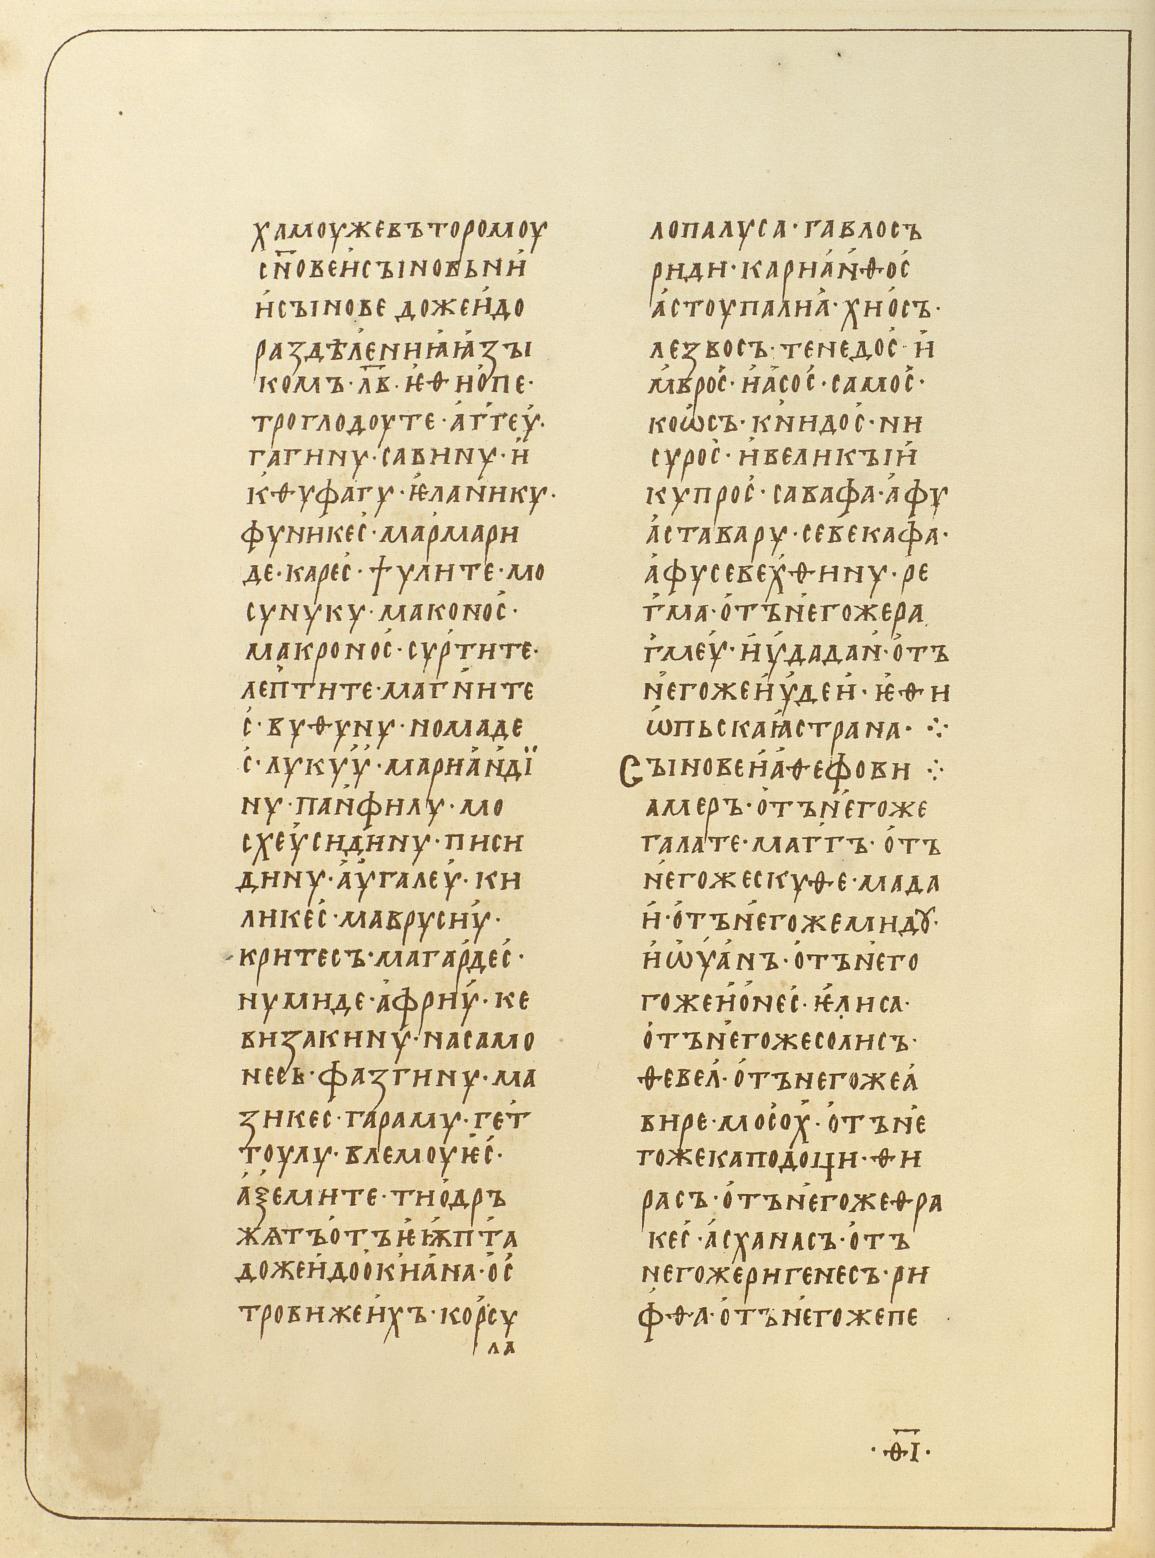 хамоужевъторомоу
сн҃овеисъıновьни
исъıнове дожеидо
раздѣлениꙗꙗзъı
комъ·лв҃·ѥѳиопе·
троглодоуте·аггеѵ·
гагинѵ·савинѵ·и
кѳѵфагѵ·ѥланикѵ·
фѵникес·мармари
де·карес·ѱѵлите·мо
сѵнѵкѵ·маконос·
макронос·сѵртите·
лептите·магните
с·вѵѳѵнѵ·номаде
с·лѵкѵѵ·мариандї
нѵ·панфилѵ·мо
схеѵсидинѵ·писи
динѵ·аѵгалеѵ·ки
ликес·маврѵсиѵ·
критесъ·магардес·
нѵмиде·африѵ·ке
визакинѵ·насамо
несь·фазгинѵ·ма
зикес·гарамѵ·гет
тоулѵ·влемоуѥс·
аѯемите·тиодръ
жѧтъотъѥгюпта
дожеидоокиана·ос
тровижеихъ·корсѵ
ла
лопалѵса·гавлосъ
риди·карианѳос
астоупалиа·хиосъ·
лезвосъ·тенедос·и
мврос·иасос·самос·
коѡсъ·книдос·ни
сѵрос·ивеликъıи
кѵпрос·савафа·афѵ
аставарѵ·севекафа·
афѵсевехѳинѵ·ре
гма·отънегожера
гмеѵ·иѵдадан·отъ
негожеиѵдеи·ѥѳи
ѡпьскаꙗстрана· ⁘
Съıновеиаѳефови ⁘
амеръ·отънегоже
галате·маггъ·отъ
негожескѵѳе·мада
и·отънегожемидꙋ·
иѡѵанъ·отънего
гожеионес·ѥлиса·
отънегожесолисъ·
ѳевел·отънегожеа
вире·мосох·отъне
гожекаподоци·ѳи
расъ·отънегожеѳра
кес·асханасъ·отъ
негожеригенесъ·ри
фѳа·отънегожепе
·ѳ҃ı·